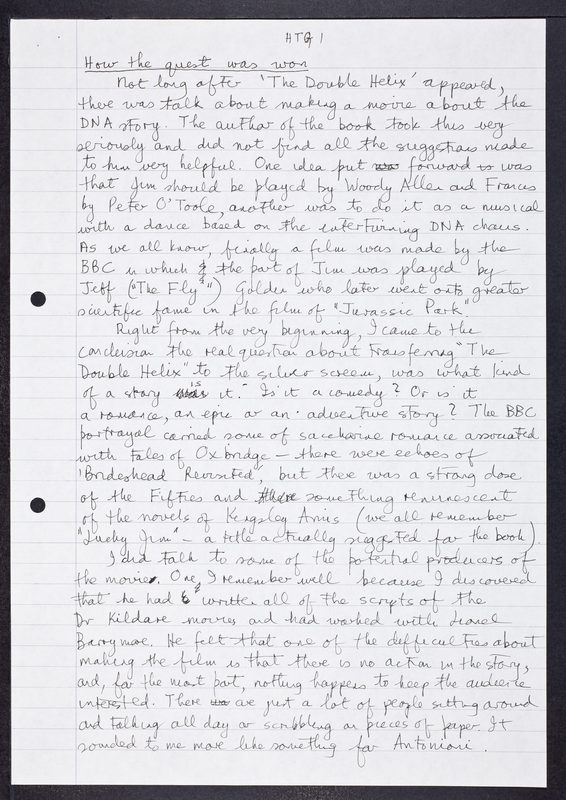 HTG 1
How the quest was won
Not long after 'The Double Helix' appeared,
there was talk about making a movie about the
DNA story. The author of the book took this very
seriously and did not find all the suggestions made
to him very helpful. One idea put was forward is was
that Jim should be played by Woody Allen and Francis
by Peter O'Toole, another was to do it as a musical
with a dance based on the intertwining DNA chains.
As we all know, finally a film was made by the
BBC in which the part of Jim was played by
Jeff ("The Fly") Golden who later went onto greater
scientific fame in the film of "Jurassic Park".
Right from the very beginning, I came to the
conclusion the real question about transferring "The
Double Helix" to the silver screen, was what kind
of a story is it. Is it a comedy? Or is it
a romance, an epic or an adventure story? The BBC
portrayal carried some of saccharine romance associated
with tales of Oxbridge – there were echoes of
'Brideshead Revisited', but there was a strong dose
of the Fifties and there something reminiscent
of the novels of Kingsley Amis (we all remember
"Lucky Jim" – a title actually suggested for the book).
I did talk to some of the potential producers of
the movie. One, I remember well because I discovered
that he had written all of the scripts of the
Dr Kildare movies and had worked with Lionel
Barrymore. He felt that one of the difficulties about
making the film is that there is no action in the story,
and, for the most part, nothing happens to keep the audience
interested. There was are just a lot of people sitting around
and talking all day or scribbling on pieces of paper. It
sounded to me more like something for Antonioni.